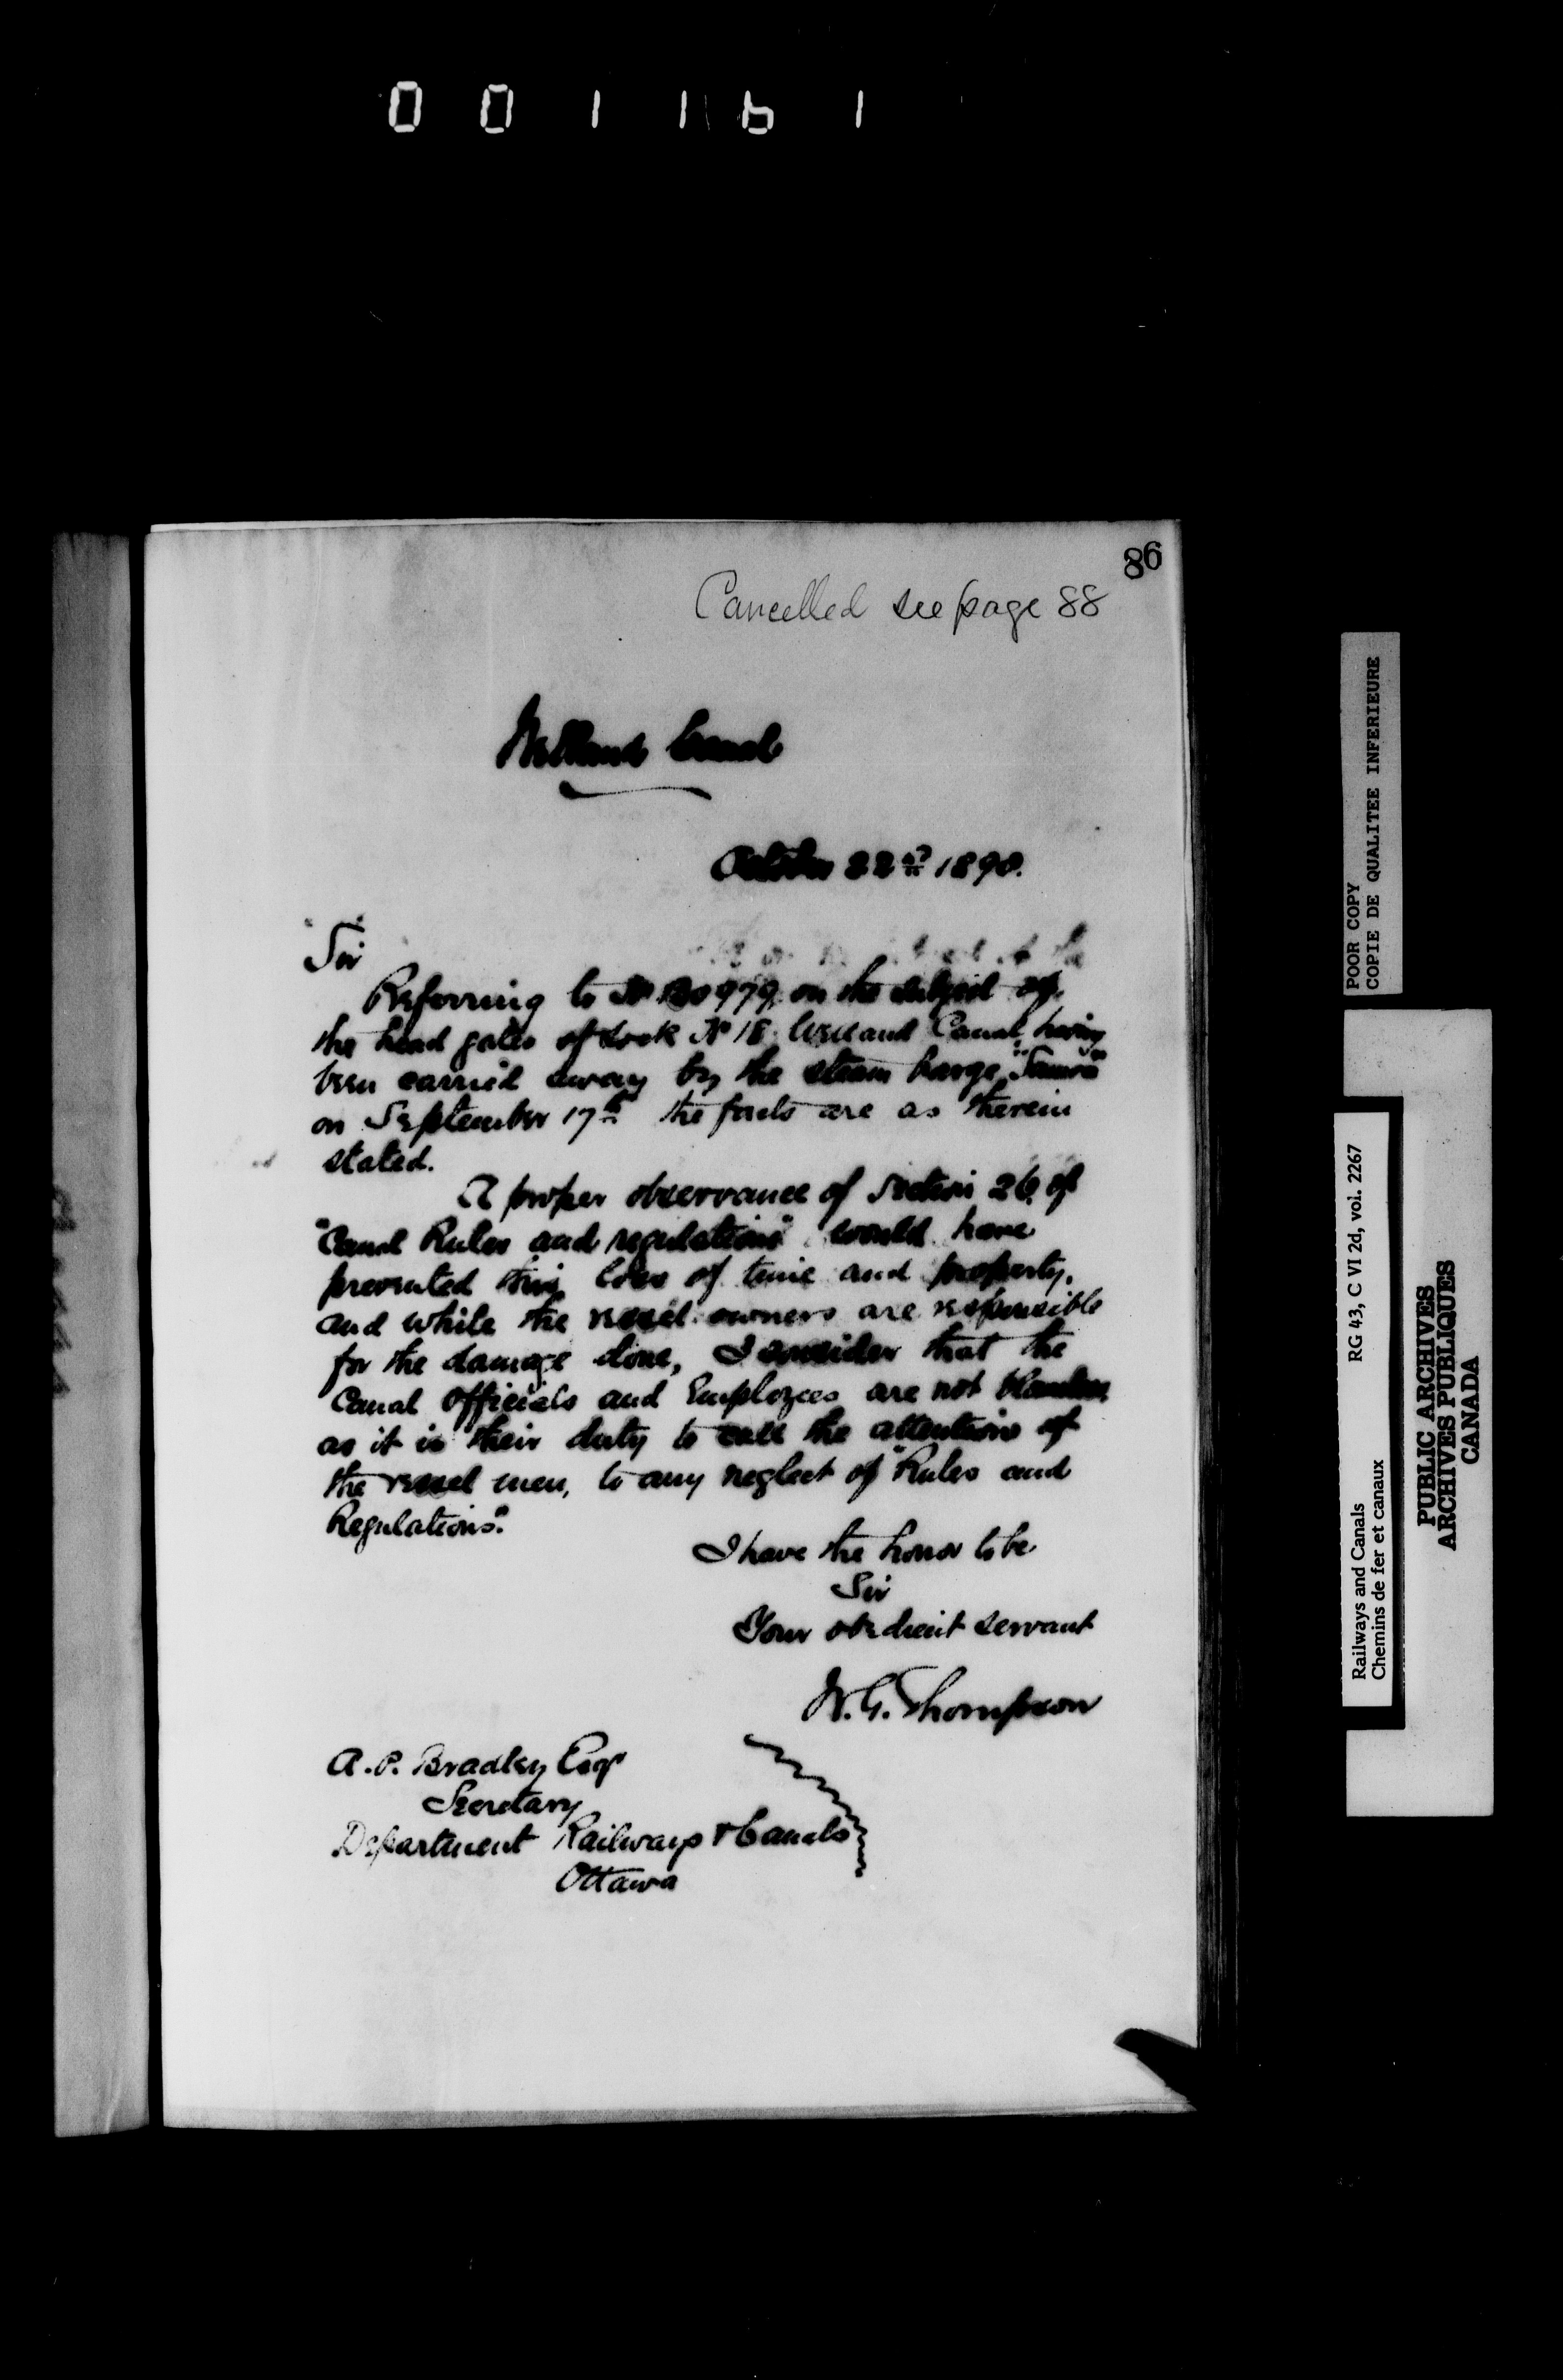 001161
86
Cancelled see page 88
Welland Canal
October 22nd 1890.
Sir
Referring to No 130979 on the subject of
the head gates of Lock No 18 Welland Canal, having
been carried away by the steam barge
on September 17th the facts are as therein
stated.
A proper observance of Section 26 of
"Canal Rules and regulations" would have
prevented this loss of time and property,
and while the vessel owners are responsible
for the damage done, I consider that the
Canal Officials and Employees are not blameless
as it is their duty to call the attention of
the vessel men, to any neglect of "Rules and
Regulations".
I have the honor to be
Sir
Your obedient servant
W.G. Thompson
A.P. Bradley Esqr
Secretary
Department Railways & Canals
Ottawa
POOR COPY
COPIE DE QUALITEE INFERIEURE
Railways and Canals RG 43, C VI 2d, vol. 2267
Chemins de fer et canaux
PUBLIC ARCHIVES
ARCHIVES PUBLIQUES
CANADA